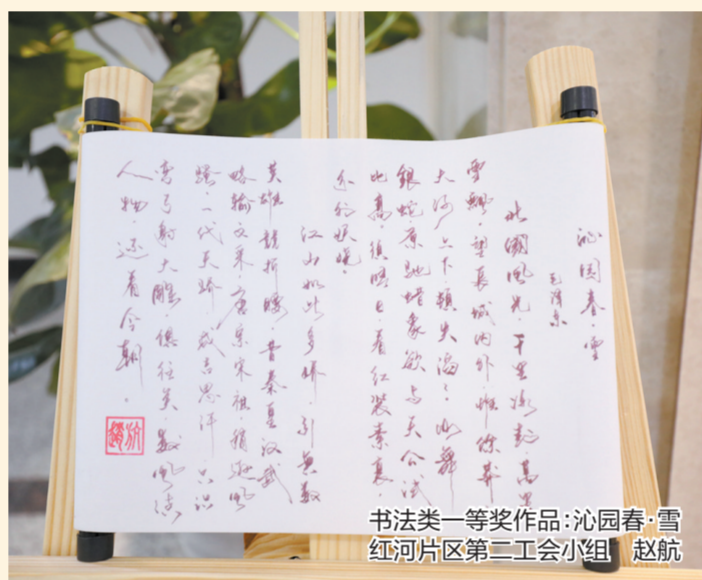 沁园春·雪
毛泽东
北國風光·千里冰封·萬里
雪飄·望長城内外·惟餘莽
大河上下·頓失滔滔·山舞
銀蛇·原馳蜡象·欲与天公試
比高·須晴日·看红装素裹·
分外妖嬈·
江山如此多娇·引無数
英雄競折腰·昔秦皇汉武
略输文采·唐宗宋祖·稍逊風
騷·一代天骄·成吉思汗·只识
弯弓射大雕·俱往矣·数風流
人物·还看今朝·
书法类一等奖作品：沁园春·雪
红河片区第二工会小组 赵航